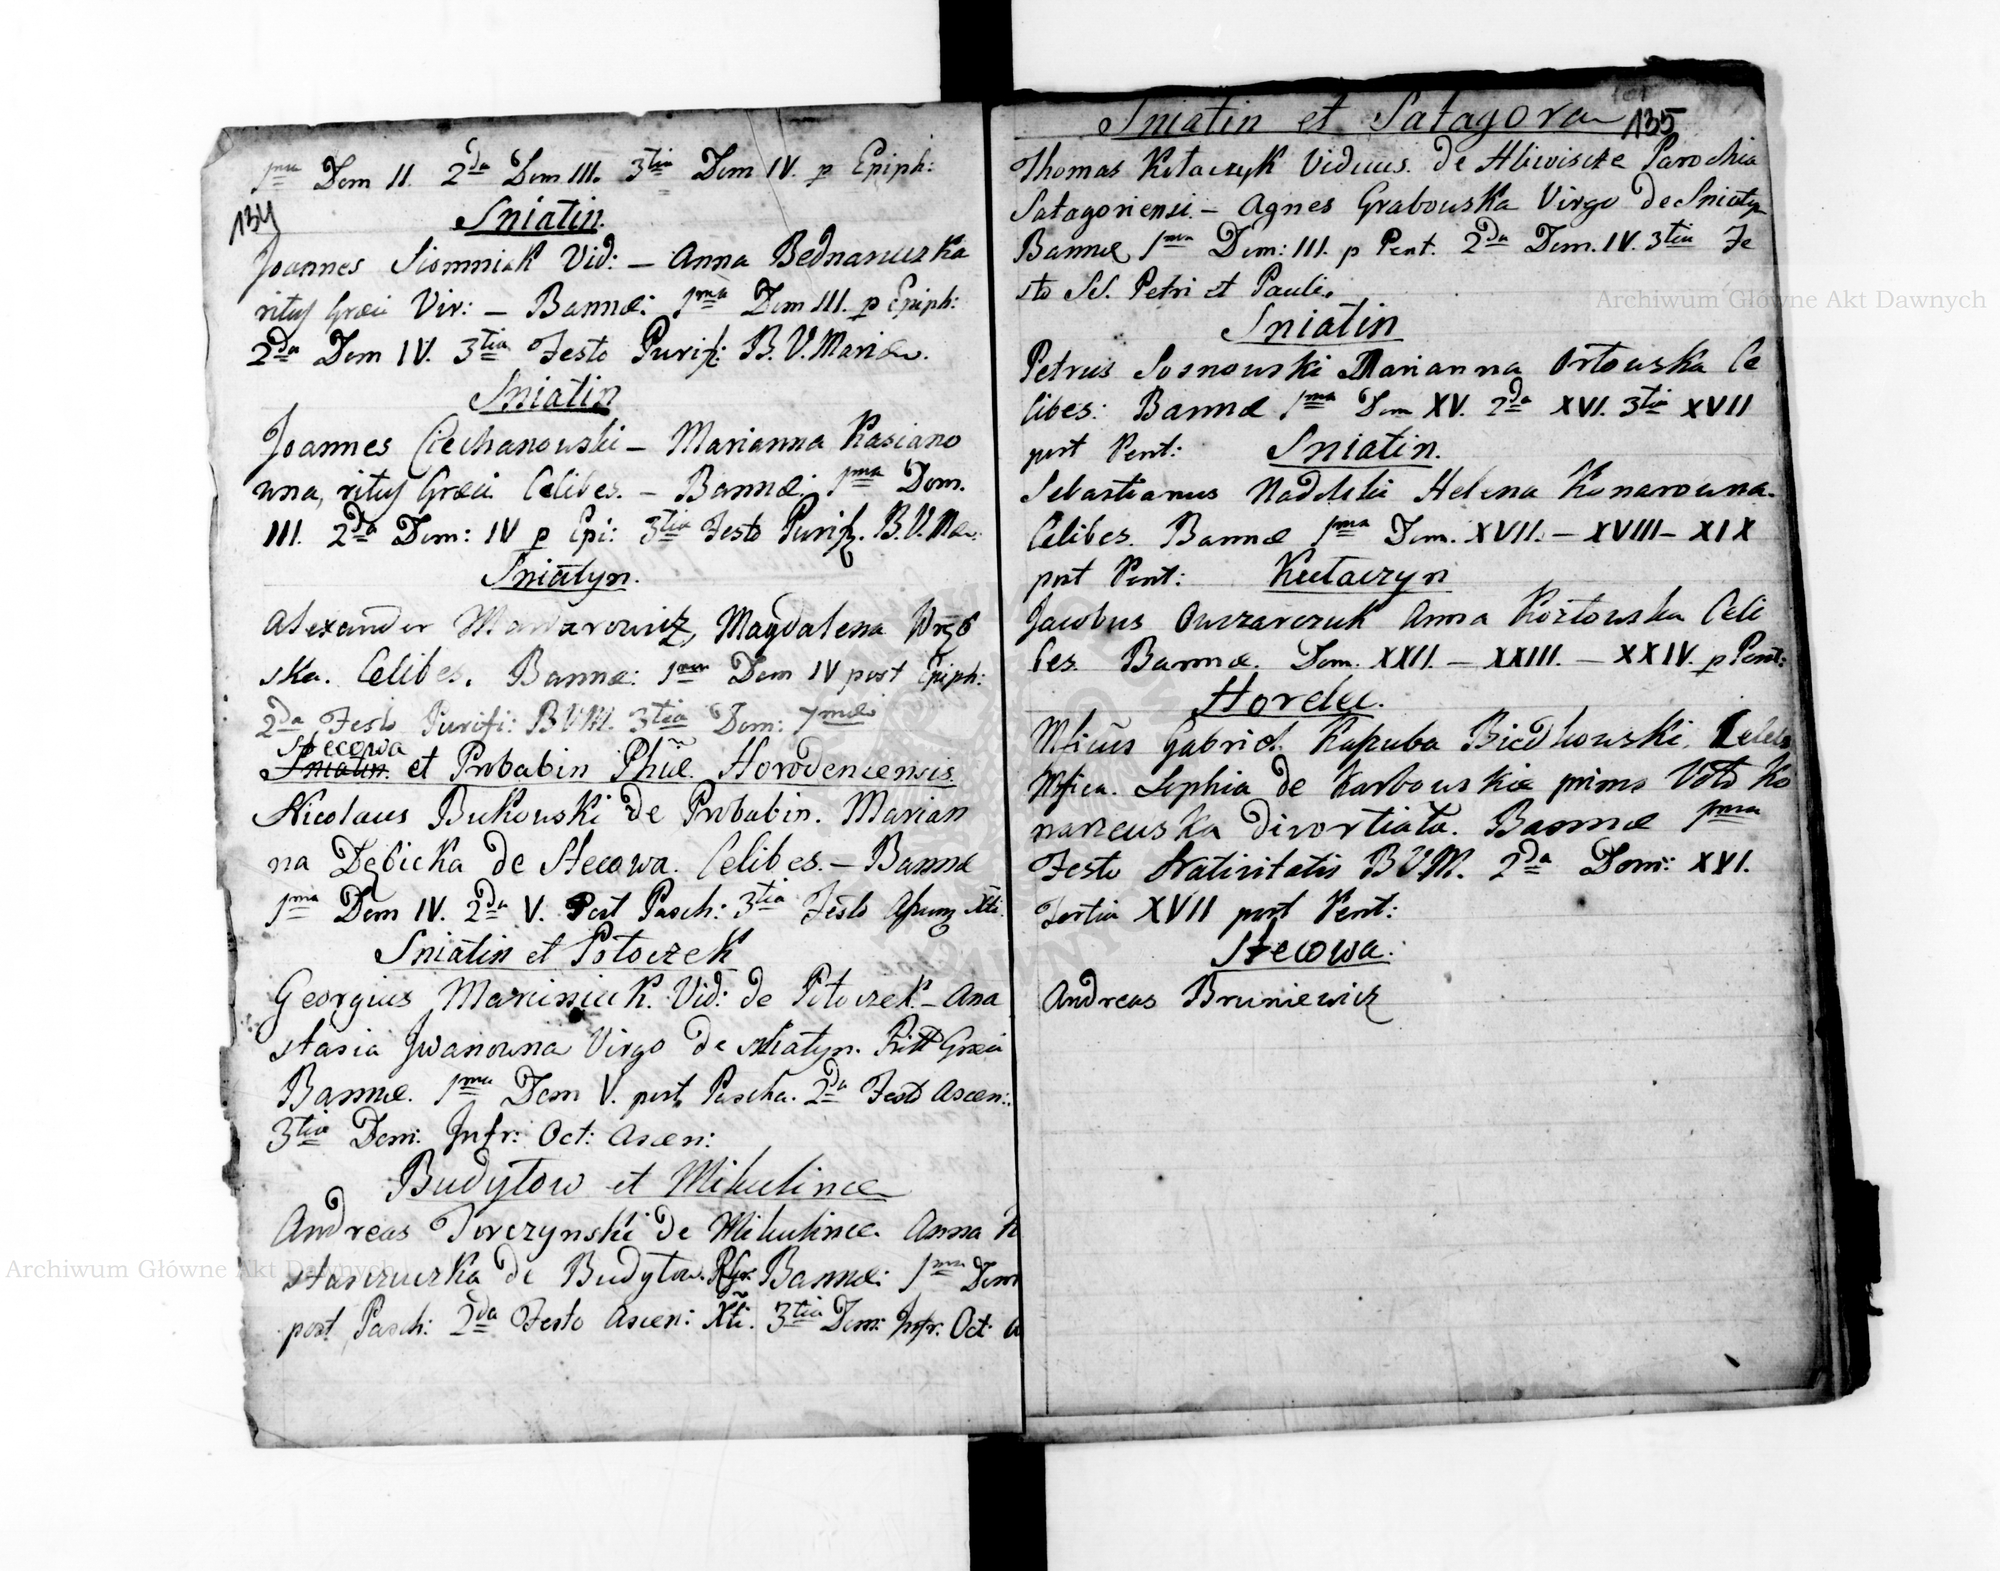 1ma Dom II. 2da Dom III. 3tia Dom IV. p Epiph:
134
Sniatin.
Joannes Siomniak Vid: – Anna Bednaruzka
ritus Græci Vir: – Bannæ: 1ma Dom III. p Epiph:
2da Dom IV. 3tia Festo Purif: B. V. Mariæ.
Sniatin
Joannes Ciechanowski – Marianna Kasiano
wna, ritus Græci Celibes. – Bannæ: 1ma Dom.
III. 2da Dom: IV p Epi: 3tia Festo Purif. B. V. Mæ:
Sniatyn.
Alexander Magdalena
ska. Celibes. Bannæ: 1ma Dom IV post Epiph:
2da Festo Purifi: B V M. 3tia Dom: 7mæ
Stecowa
Sniatin. et Probabin Phiæ Horodencensis
Nicolaus Bukowski de Probabin. Marian
na Dębicka de Stecowa. Celibes. – Bannæ
1ma Dom IV. 2da V. Post Pasch: 3tia Festo Xti.
Sniatin et Potoczek
Georgius Vid: de Potoczek – Ana
stasia Jwanowna Virgo de Græci
Bannæ. 1ma Dom V. post Pascha. 2da Festo Ascen:
3tia Dom: Infr: Oct: Ascen:
Budyłow et Mikulince
Andreas Torczynski de Mikulince. Anna
de Budyłow. Bannæ: 1ma Dom
post Pasch: 2da Festo Ascen: Xti. 3tia Dom: Infr: Oct:
Sniatin et Satagora
135
Thomas Kołaczyk Viduus. de Hliwiscze Parochia
Satagoriensi – Agnes Grabowska Virgo de Sniatyn
Bannæ 1ma Dom: III. p Pent. 2da Dom. IV. 3tia Fe
sto SS. Petri et Pauli.
Sniatin
Petrus Sosnowski Marianna Orłowska Ce
libes: Bannæ 1ma Dom XV. 2da XVI. 3tia XVII
post Pent: Sniatin.
Sebastianus Nadolski Helena Konarowna.
Celibes. Bannæ 1ma Dom. XVII. – XVIII – XIX
post Pent: Kułaczyn
Jacobus Owczarczuk Anna Kozłowska Celi
bes. Bannæ. Dom. XXII. – XXIII. – XXIV. p Pent:
Hordec.
Gabriel Kapuba Biedkowski. Celebs
Sophia de Karbowskie primo Voto Ko
divortiata. Bannæ 1ma
Festo Nativitatis B V M. 2da Dom: XVI.
Tertia XVII post Pent:
Stecowa.
Andreas Bruniewicz
Archiwum Główne Akt Dawnych
Archiwum Główne Akt Dawnych